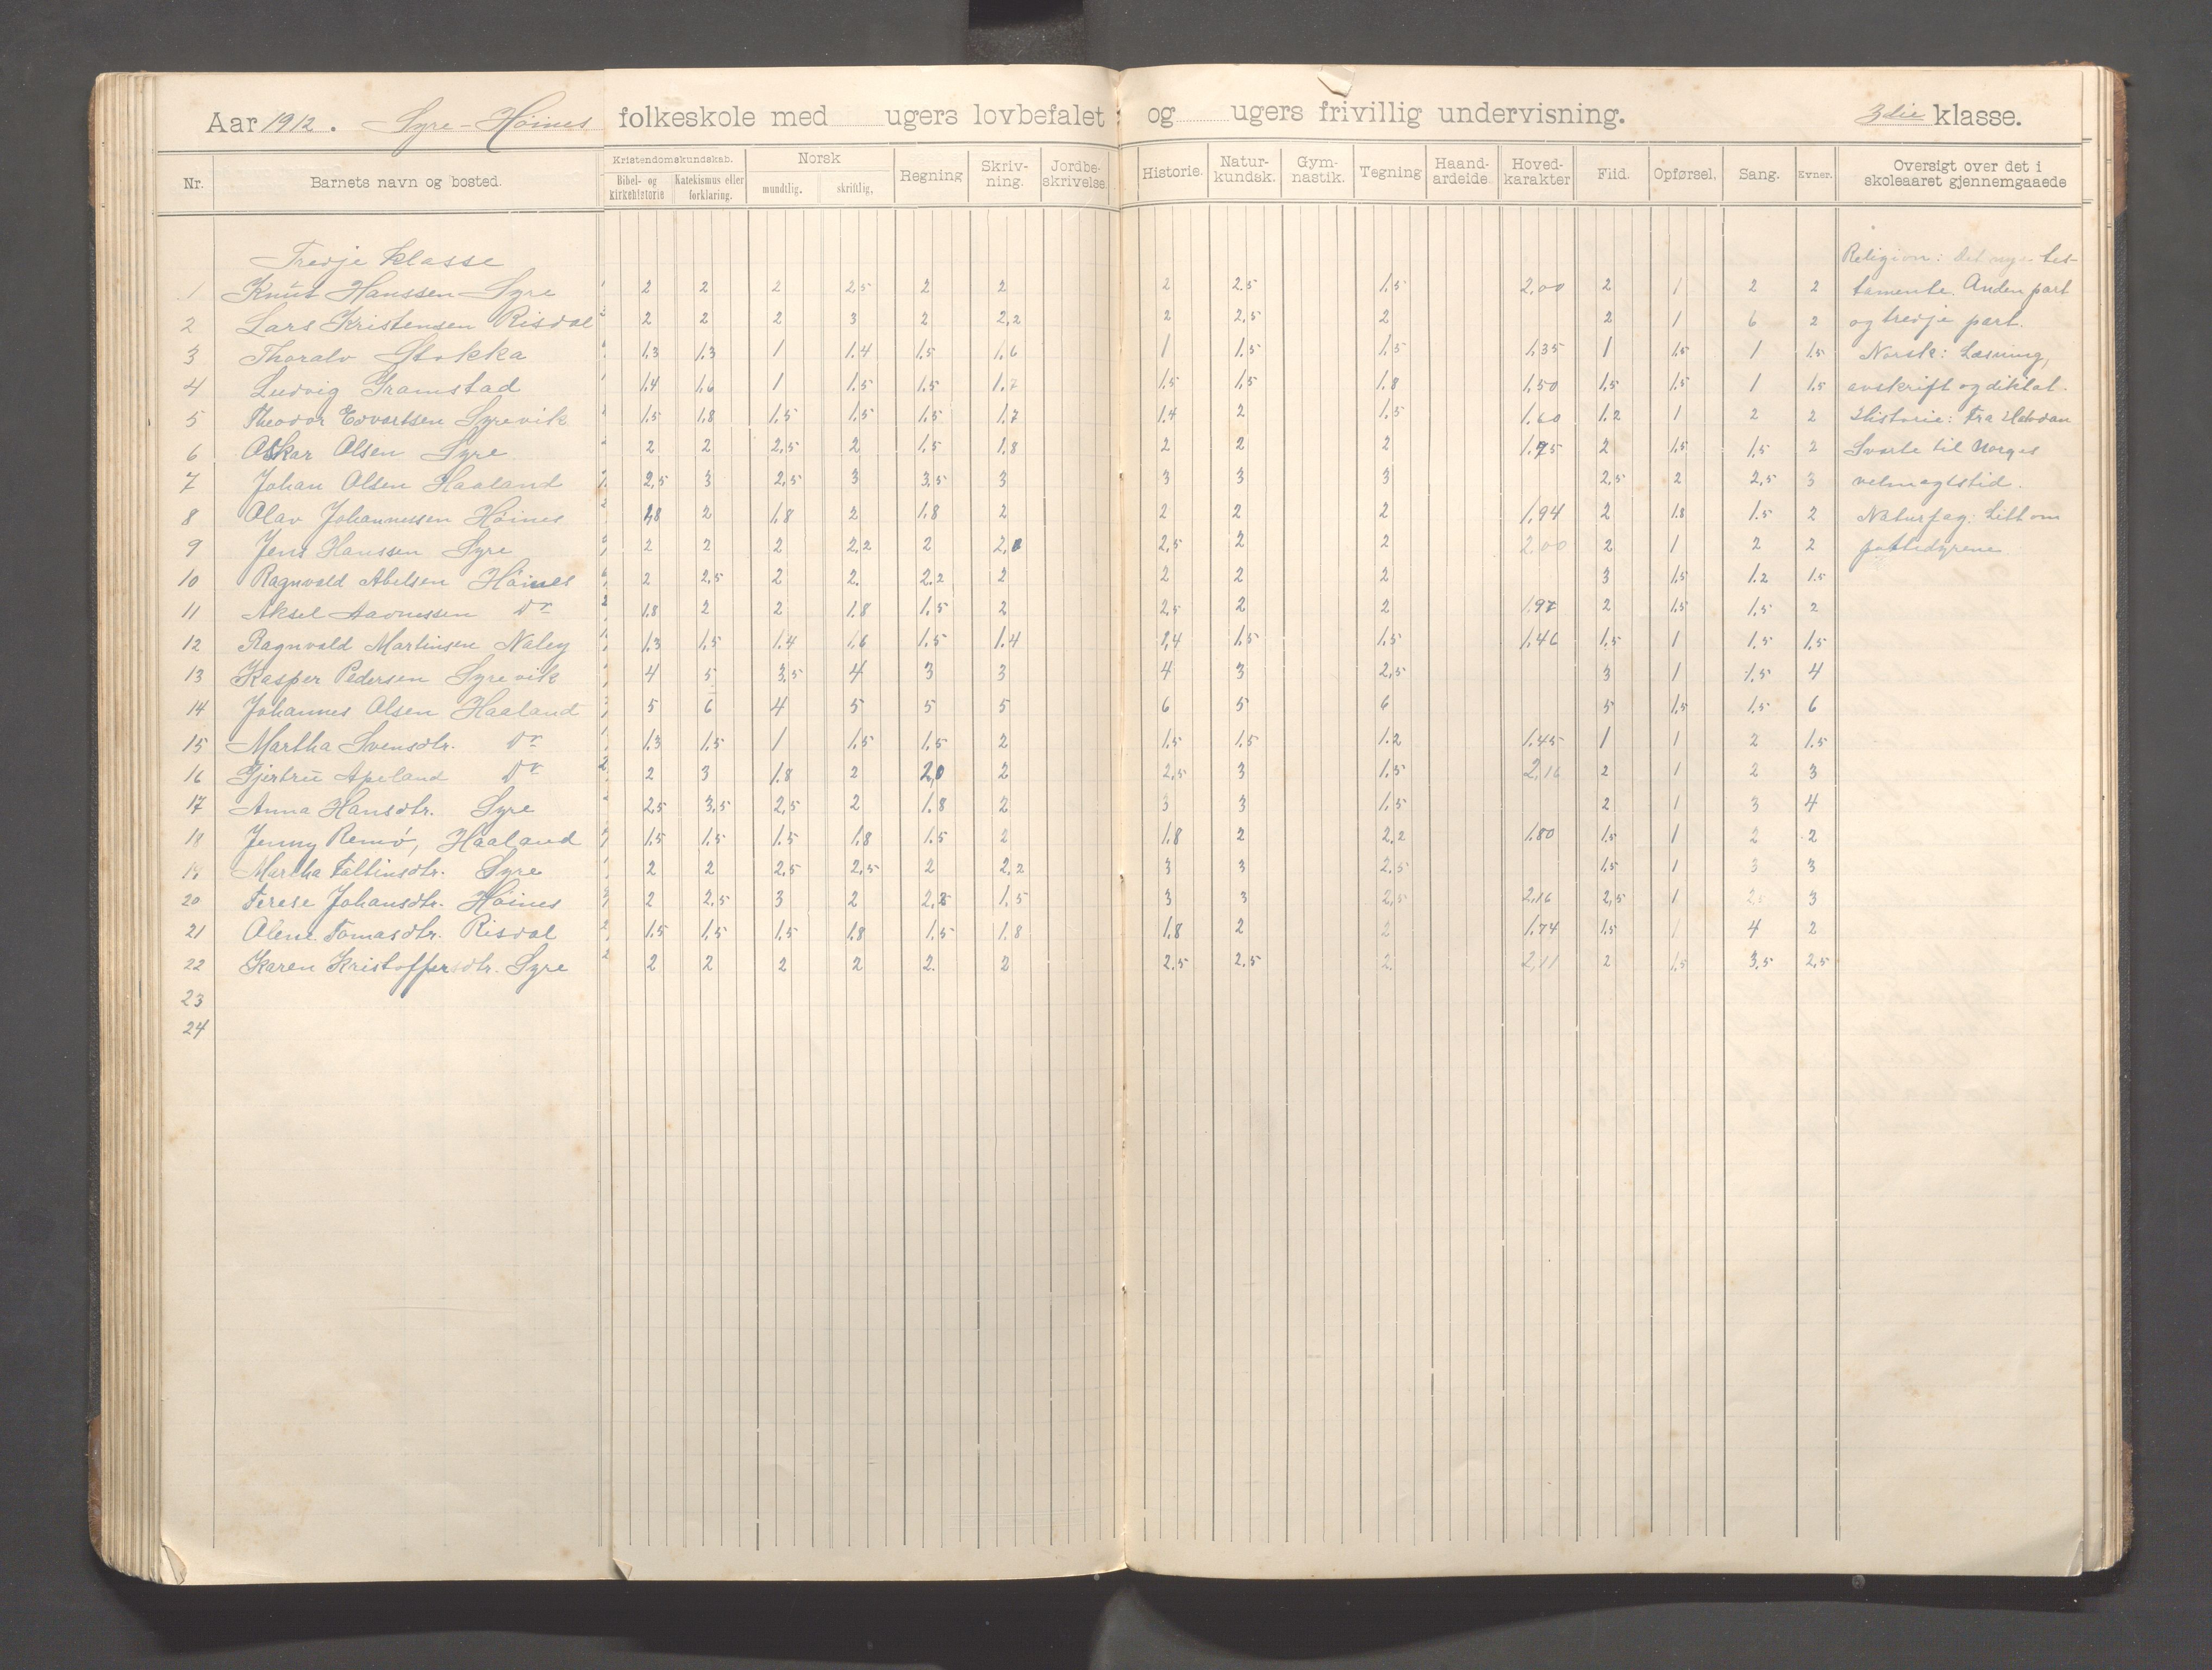 Aar 1912. Syre-Höines folkeskole med ugers lovbefalet og ugers frivillig undervisning. 3die klasse.
Nr. Barnets navn og bosted. Kristendomskundskab. Bibel- og kirkehistorie Katekismus eller forklaring. Norsk mundtlig. skriftlig, Regning Skriv-ning. Jordbe-skrivelse. Historie. Natur-kundsk. Gym-nastik. Tegning Haand-ardeide Hoved-karakter Flid. Opførsel. Sang. Evner. Oversigt over det i skoleaaret gjennemgaaede
Tredje klasse Religion: Det nye tes-
1 Knut Hanssen Syre 2 2 2 2,5 2 2 2 2,5 1,5 2,00 2 1 2 2 tamente. Anden part
2 Lars Kristensen Risdal 2 2 2 3 2 2,2 2 2,5 2 2 1 6 2 og tredje part.
3 Thoralv Stokka 1,3 1,3 1 1,4 1,5 1,6 1 1,5 1,5 1,35 1 1,5 1 1,5 Norsk: Læsning,
4 Ludvig Gramstad 1,4 1,6 1 1,5 1,5 1,7 1,5 1,5 1,8 1,50 1,5 1,5 1 1,5 avskrift og diktat.
5 Theodor Edvartsen Syrevik 1,5 1,8 1,5 1,5 1,5 1,7 1,4 2 1,5 1,60 1,2 1 2 2 Historie: Fra Halvdan
6 Oskar Olsen Syre 2 2 2,5 2 1,5 1,8 2 2 2 1,95 2 1,5 1,5 2 Svarte til Norges
7 Johan Olsen Haaland 2,5 3 2,5 3 3,5 3 3 3 3 2,5 2 2,5 3 velmagtstid.
8 Olav Johannessen Höines 1,8 2 1,8 2 1,8 2 2 2 2 1,94 2 1,8 1,5 2 Naturfag: Litt om
9 Jens Hanssen Syre 2 2 2 2,2 2 2,0 2,5 2 2 2,00 2 1 2 2 pattedyrene
10 Ragnvald Abelsen Höines 2 2,5 2 2. 2,2 2 2 2 2 3 1,5 1,2 1,5
11 Aksel Aadnessen Do 1,8 2 2 1,8 1,5 2 2,5 2 2 1,97 2 1,5 1,5 2
12 Ragnvald Martinsen Naley 1,3 1,5 1,4 1,6 1,5 1,4 1,4 1,5 1,5 1,46 1,5 1 1,5 1,5
13 Kasper Pedersen Syrevik 4 5 3,5 4 3 3 4 3 2,5 3 1 1,5 4
14 Johannes Olsen Haaland 5 6 4 5 5 5 6 5 6 5 1,5 1,5 6
15 Martha Svensdtr. Do 1,3 1,5 1 1,5 1,5 2 1,5 1,5 1,2 1,45 1 1 2 1,5
16 Gjertru Apeland Do 2 3 1,8 2 2,0 2 2,5 3 1,5 2,16 2 1 2 3
17 Anna Hansdtr. Syre 2,5 3,5 2,5 2 1,8 2 3 3 1,5 2 1 3 4
18 Jenny Remö, Haaland 1,5 1,5 1,5 1,8 1,5 2 1,8 2 2,2 1,80 1,5 1 2 2
19 Martha Faltinsdtr. Syre 2 2 2,5 2,5 2 2,2 3 3 2,5 1,5 1 3 3
20 Terese Johansdtr. Höines 2 2,5 3 2 2,2 1,5 3 3 2,5 2,16 2,5 1 2,5 3
21 Olene Tomasdtr. Risdal 1,5 1,5 1,5 1,8 1,5 1,8 1,8 2 2 1,74 1,5 1 4 2
22 Karen Kristoffersdtr. Syre 2 2 2 2 2. 2 2,5 2,5 2. 2,11 2 1,5 3,5 2,5
23
24